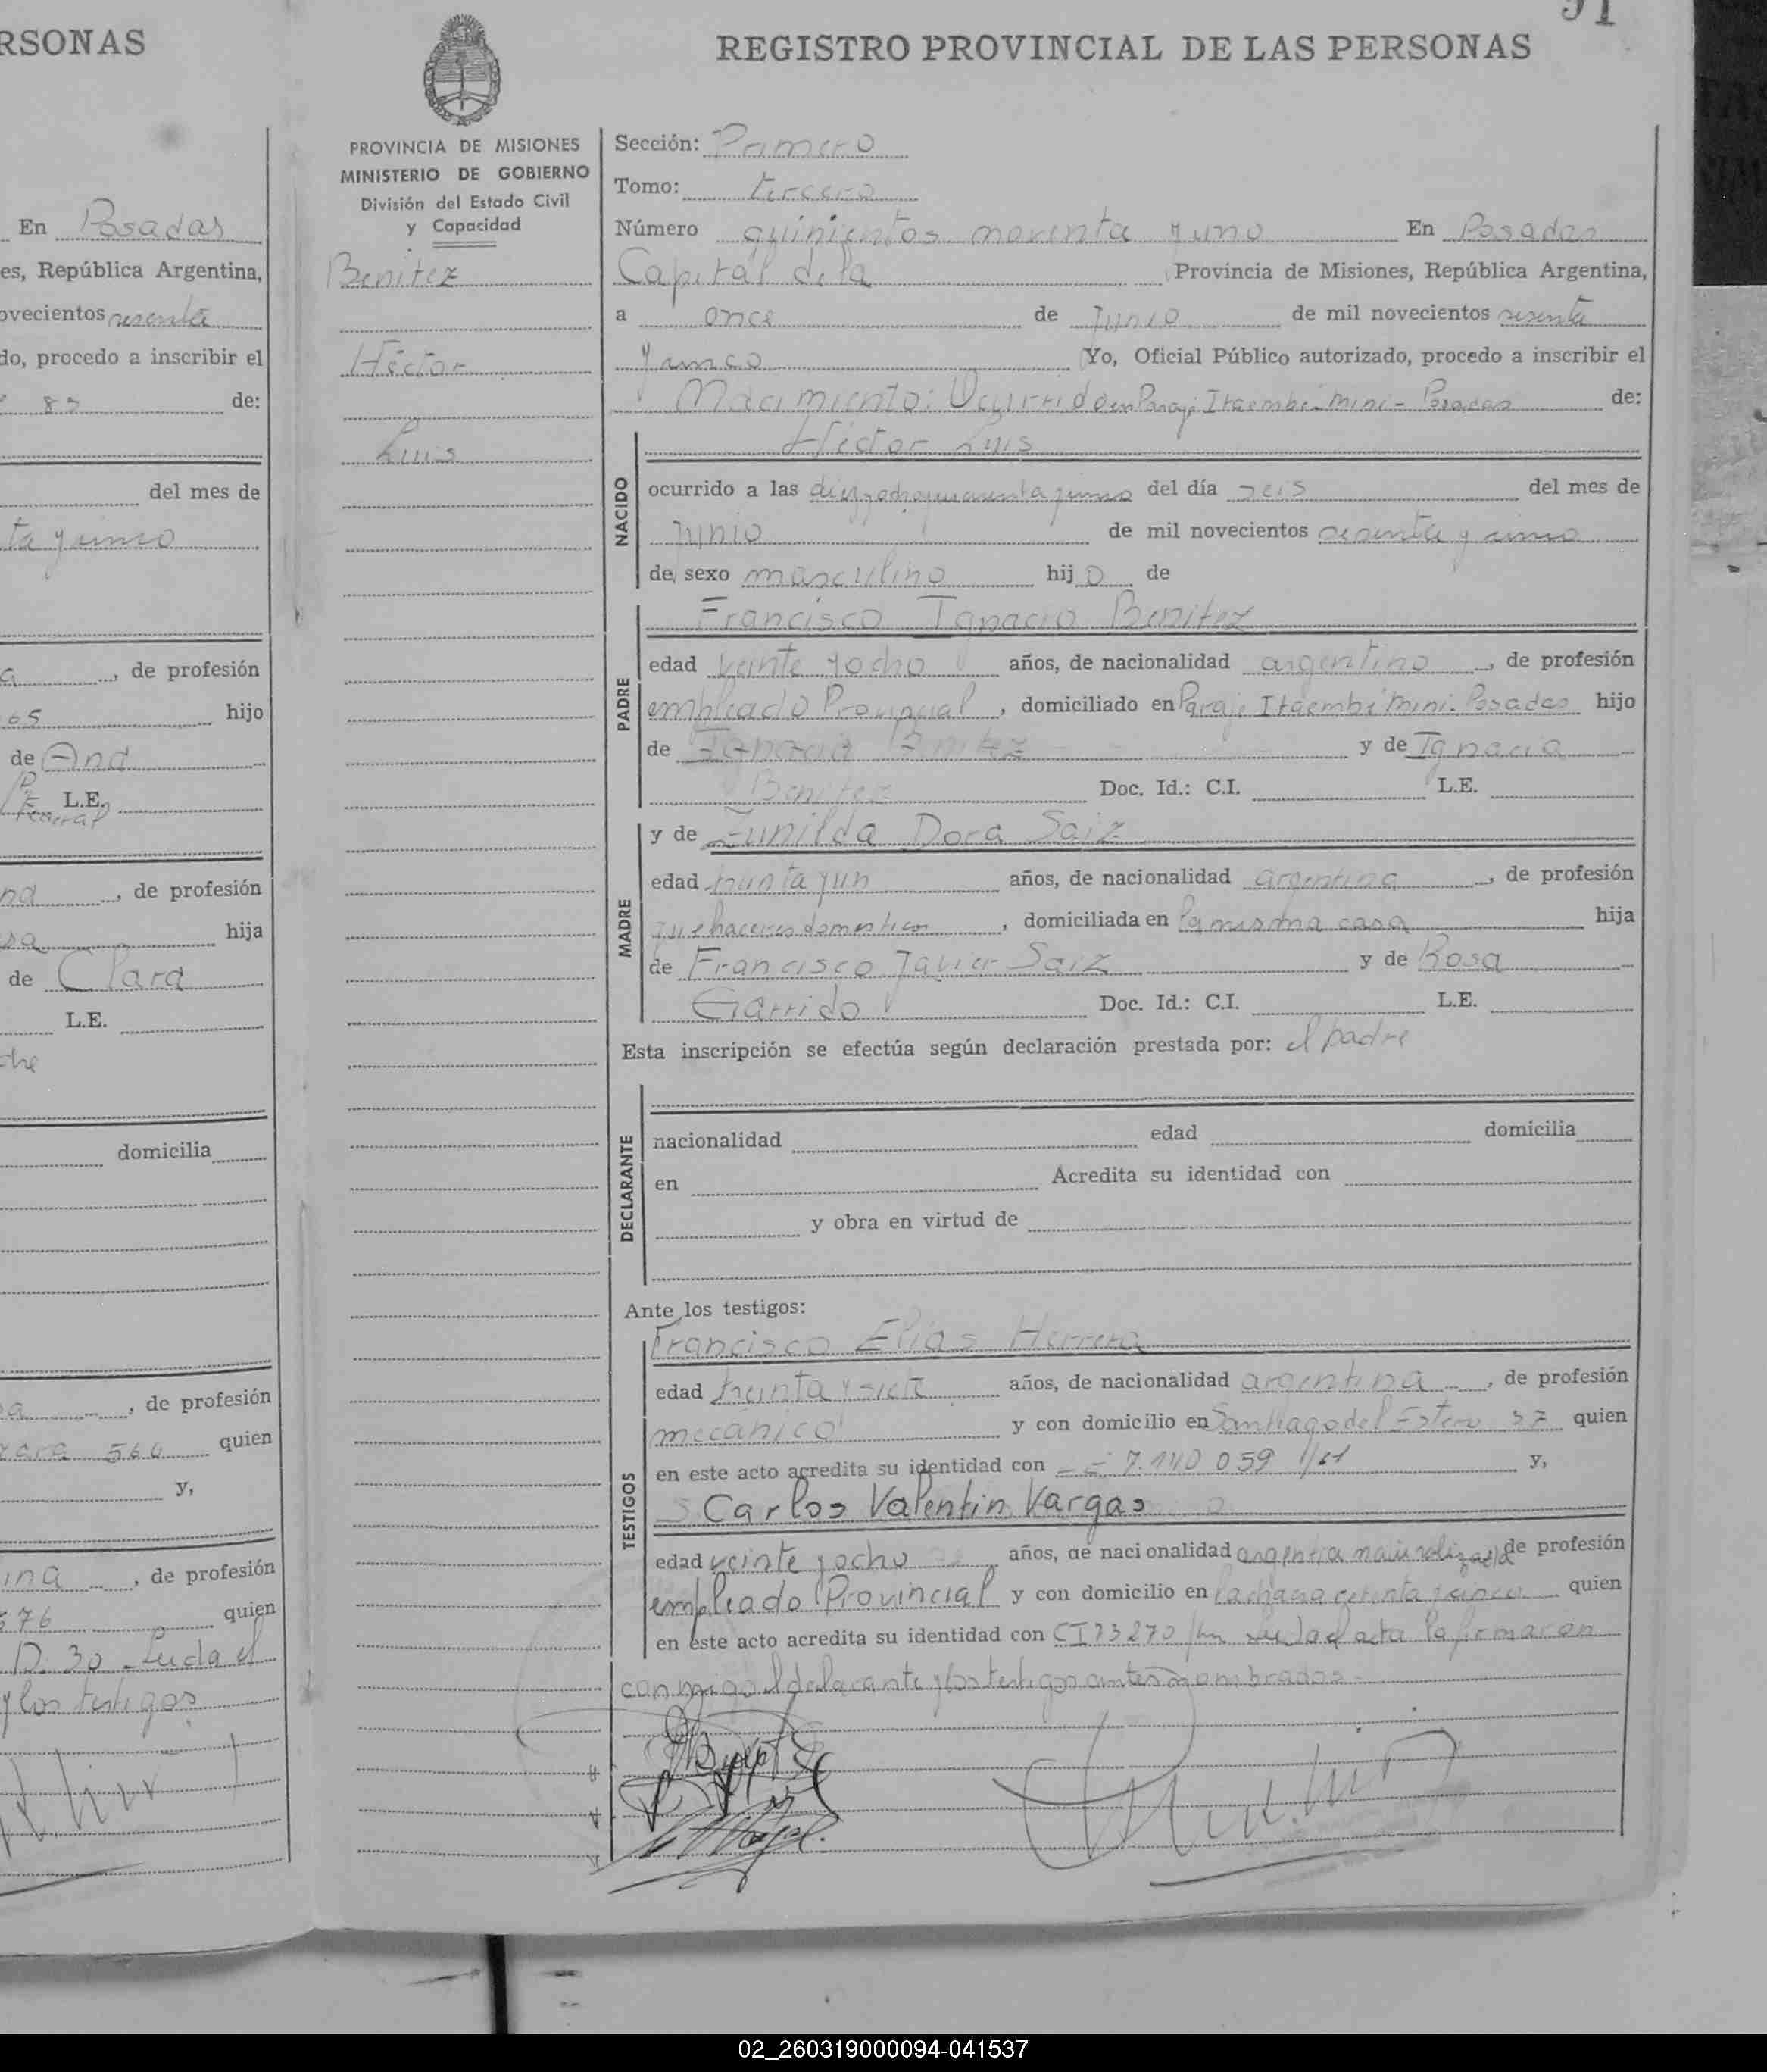 RSONAS
En Posadas
es, República Argentina,
ovecientos sesenta
do, procedo a inscribir el
de:
del mes de
ta y cinco
a, de profesión
65 hijo
de Ana
L.E.
Federal
na, de profesión
sa hija
de Clara
L.E.
domicilia
a, de profesión
560 quien
y,
ina, de profesión
576 quien
D. 30 Leida el
y los testigos
91
REGISTRO PROVINCIAL DE LAS PERSONAS
PROVINCIA DE MISIONES
MINISTERIO DE GOBIERNO
División del Estado Civil
y Capacidad
Benitez
Héctor
Luis
Sección: Primero
Tomo: tercero
Número quinientos noventa y uno En Posadas
Capital de la Provincia de Misiones, República Argentina,
a once de Junio de mil novecientos sesenta
y cinco Yo, Oficial Público autorizado, procedo a inscribir el
Nacimiento: Ocurrido en Paraje Itaembé-mini- Posadas de:
Héctor Luis
NACIDO
ocurrido a las diez y ocho y cuarenta y cinco del día seis del mes de
junio de mil novecientos sesenta y cinco
de sexo masculino hijo de
PADRE
Francisco Ignacio Benitez
edad veinte y ocho años, de nacionalidad argentino, de profesión
empleado Provincial, domiciliado en Paraje Itaembé mini. Posadas hijo
de Ignacio Benitez y de Ignacia
Benitez Doc. Id.: C.I. L.E.
MADRE
y de Zunilda Dora Saiz
edad treinta y un años, de nacionalidad argentina, de profesión
quehaceres domesticos, domiciliada en la misma casa hija
de Francisco Javier Saiz y de Rosa
Garrido Doc. Id.: C.I. L.E.
Esta inscripción se efectúa según declaración prestada por: el padre
DECLARANTE
nacionalidad edad domicilia
en Acredita su identidad con
y obra en virtud de
Ante los testigos:
TESTIGOS
Francisco Elias Herrera
edad treinta y siete años, de nacionalidad argentina, de profesión
mecánico y con domicilio en Santiago del Estero 37 quien
en este acto acredita su identidad con 7.140 059 y,
Carlos Valentin Vargas
edad veinte y ocho años, de nacionalidad argentina naturalizada de profesión
empleado Provincial y con domicilio en quien
en este acto acredita su identidad con CI 73270 Leida el acta la firmaron
conmigo el declarante y los testigos antes nombrados-
02_260319000094-041537